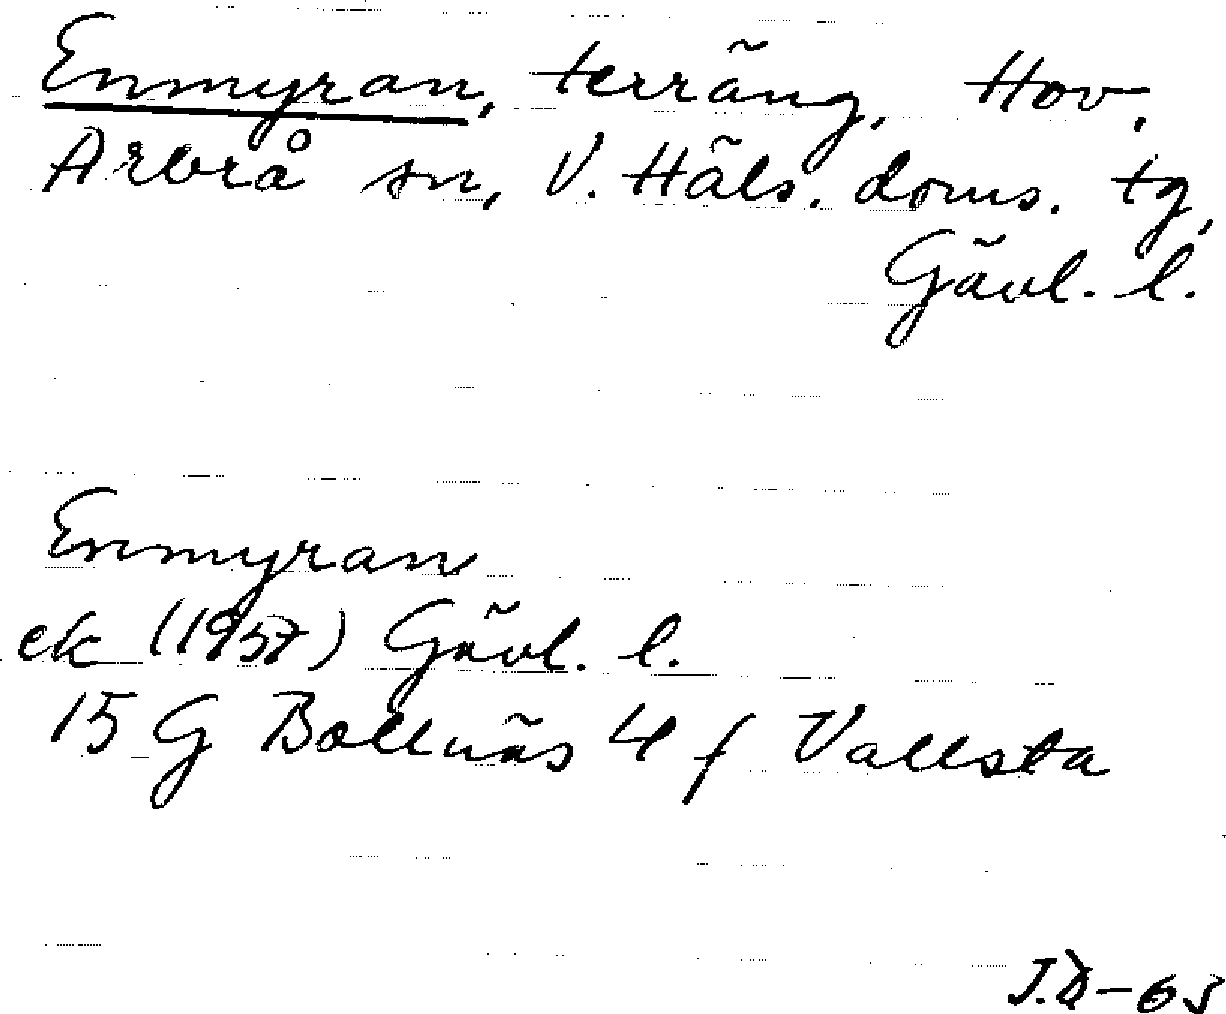 Enmyran, terräng, Hov,
Arbrå sn, V. Häls. doms. tg,
Gävl. l.
Enmyran
ek (1957) Gävl. l.
15 G Bollnäs 4 f Vallsta